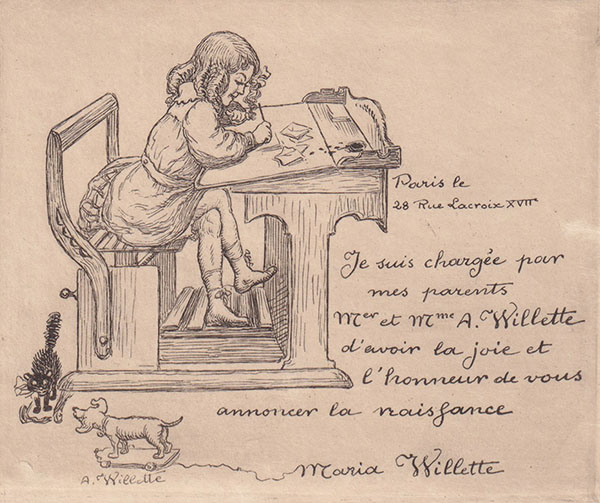 Paris le
28 Rue Lacroix XVII
Je suis chargée par
mes parents
Mer et Mme A. Willette
d'avoir la joie et
l'honneur de vous
annoncer la naissance
Maria Willette
A. Willette